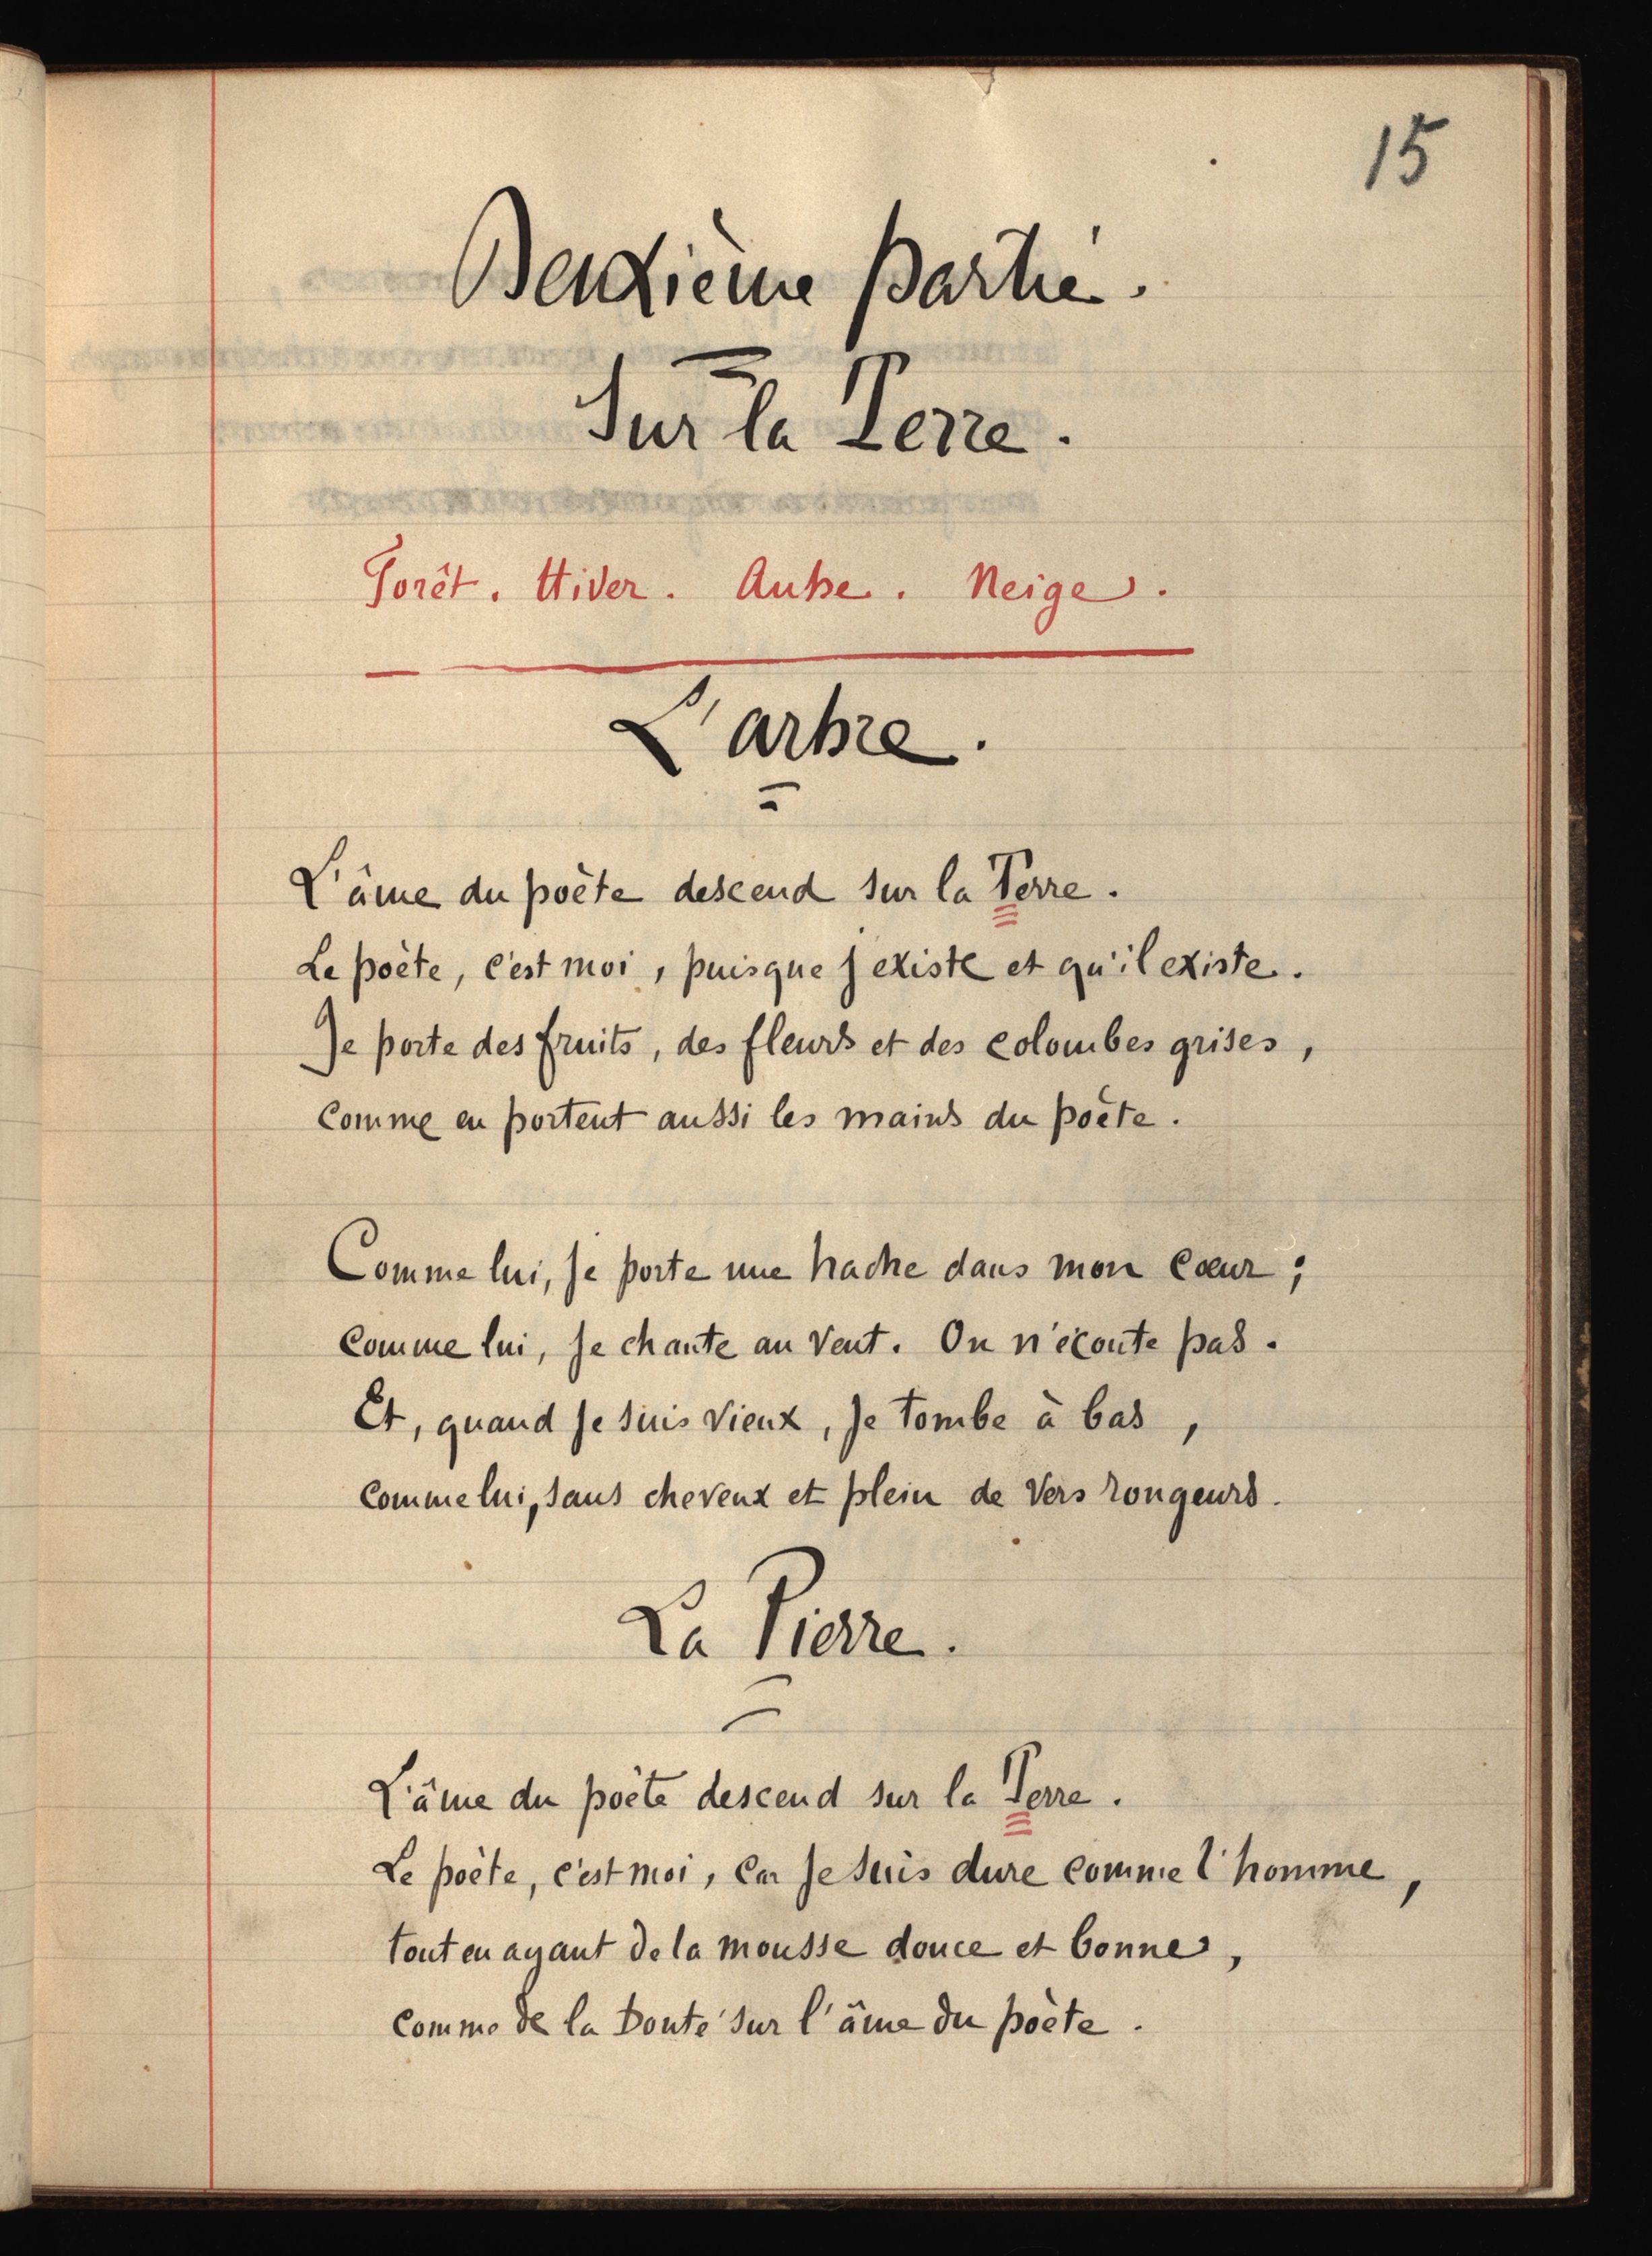 15
Deuxième partie.
Sur la Terre.
Forêt. Hiver. Aube. Neige.
L'arbre.
L'âme du poète descend sur la Terre.
Le poète, c'est moi, puisque j'existe et qu'il existe.
Je porte des fruits, des fleurs et des colombes grises,
comme en portent aussi les mains du poète.
Comme lui, je porte une hache dans mon cœur ;
comme lui, je chante au vent. On n'écoute pas.
Et, quand je suis vieux, je tombe à bas,
comme lui, sans cheveux et plein de vers rongeurs.
La Pierre.
L'âme du poète descend sur la Terre.
Le poète, c'est moi, car je suis dure comme l'homme,
tout en ayant de la mousse douce et bonne,
comme de la bonté sur l'âme du poète.